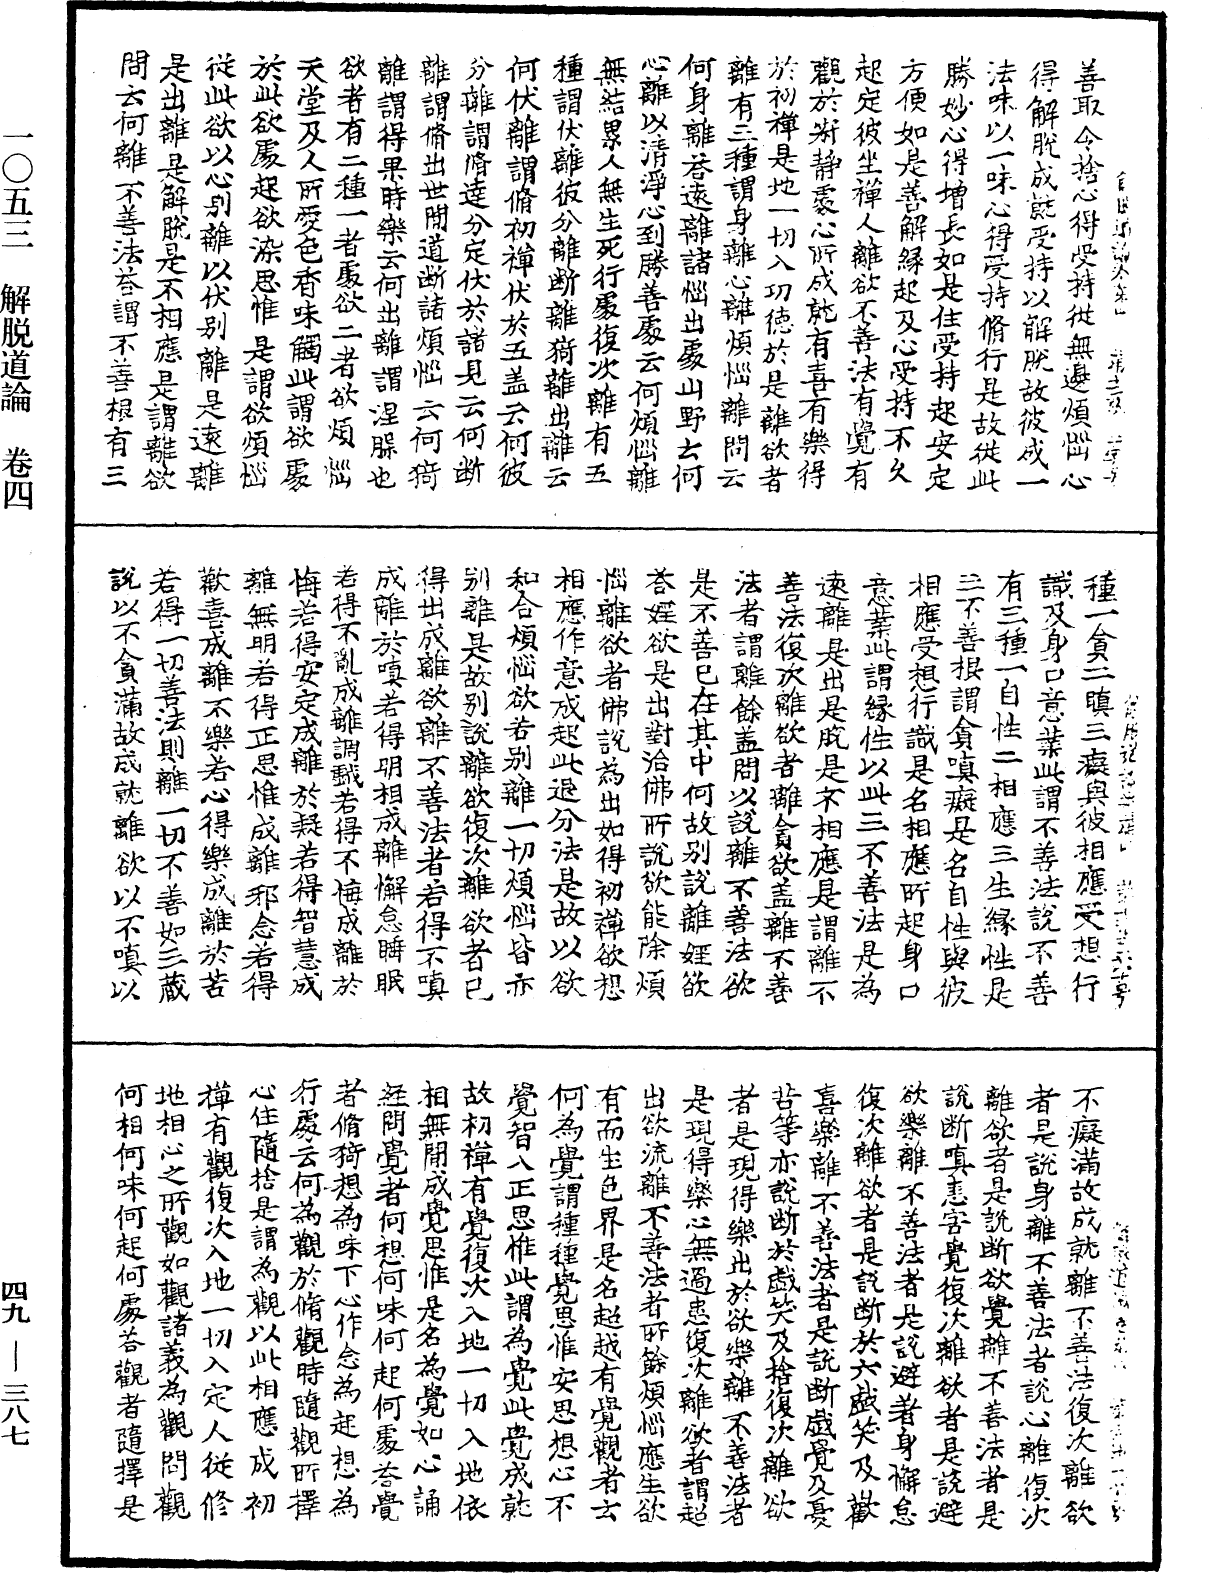 善取令捨心得受持從無邊煩惱心
得解脫成就受持以解脫故彼成一
法味以一味心得受持脩行是故從此
勝妙心得增長如是住受持起安定
方便如是善解緣起及心受持不久
起定彼坐禪人離欲不善法有覺有
觀於新靜處心所成就有喜有樂得
於初禪是地一切入功德於是離欲者
離有三種謂身離心離煩惱離問云
何身離荅遠離諸惱出處山野云何
心離以清淨心到勝善處云何煩惱離
無結累人無生死行處復次離有五
種謂伏離彼分離斷離猗離出離云
何伏離謂脩初禪伏於五盖云何彼
分離謂脩達分定伏於諸見云何斷
離謂脩出世間道斷諸煩惱云何猗
離謂得果時樂云何出離謂涅槃也
欲者有二種一者處欲二者欲煩惱
天堂及人所愛色香味觸此謂欲處
於此欲處起欲染思惟是謂欲煩惱
從此欲以心別離以伏別離是遠離
是出離是解脫是不相應是謂離欲
問云何離不善法荅謂不善根有三
種一貪二瞋三癡與彼相應受想行
識及身口意業此謂不善法說不善
有三種一自性二相應三生緣性是
三不善根謂貪瞋癡是名自性與彼
相應受想行識是名相應所起身口
意業此謂緣性以此三不善法是為
遠離是出是脫是不相應是謂離不
善法復次離欲者離貪欲盖離不善
法者謂離餘盖問以說離不善法欲
是不善已在其中何故別說離婬欲
荅婬欲是出對治佛所說欲能除煩
惱離欲者佛說為出如得初禪欲想
相應作意成起此退分法是故以欲
和合煩惱欲若別離一切煩惱皆亦
別離是故別說離欲復次離欲者已
得出成離欲離不善法者若得不嗔
成離於嗔若得明相成離懈怠睡眠
若得不亂成離調戲若得不悔成離於
悔若得安定成離於疑若得智慧成
離無明若得正思惟成離邪念若得
歡喜成離不樂若心得樂成離於苦
若得一切善法則離一切不善如三藏
說以不貪滿故成就離欲以不嗔以
不癡滿故成就離不善法復次離欲
者是說身離不善法者說心離復次
離欲者是說斷欲覺離不善法者是
說斷嗔恚害覺復次離欲者是說避
欲樂離不善法者是說避著身懈怠
復次離欲者是說斷於六戲笑及歡
喜樂離不善法者是說斷戲覺及憂
苦等亦說斷於戲笑及捨復次離欲
者是現得樂出於欲樂離不善法者
是現得樂心無過患復次離欲者謂超
出欲流離不善法者所餘煩惱應生欲
有而生色界是名超越有覺觀者云
何為覺謂種種覺思惟安思想心不
覺智入正思惟此謂為覺此覺成就
故初禪有覺復次入地一切入地依
相無間成覺思惟是名為覺如心誦
經問覺者何想何味何起何處荅覺
者脩猗想為味下心作念為起想為
行處云何為觀於脩觀時隨觀所擇
心住隨捨是謂為觀以此相應成初
禪有觀復次入地一切入定人從脩
地相心之所觀如觀諸義為觀問觀
何相何味何起何處荅觀者隨擇是
一〇五三　解脫道論　卷四
四九—三八七